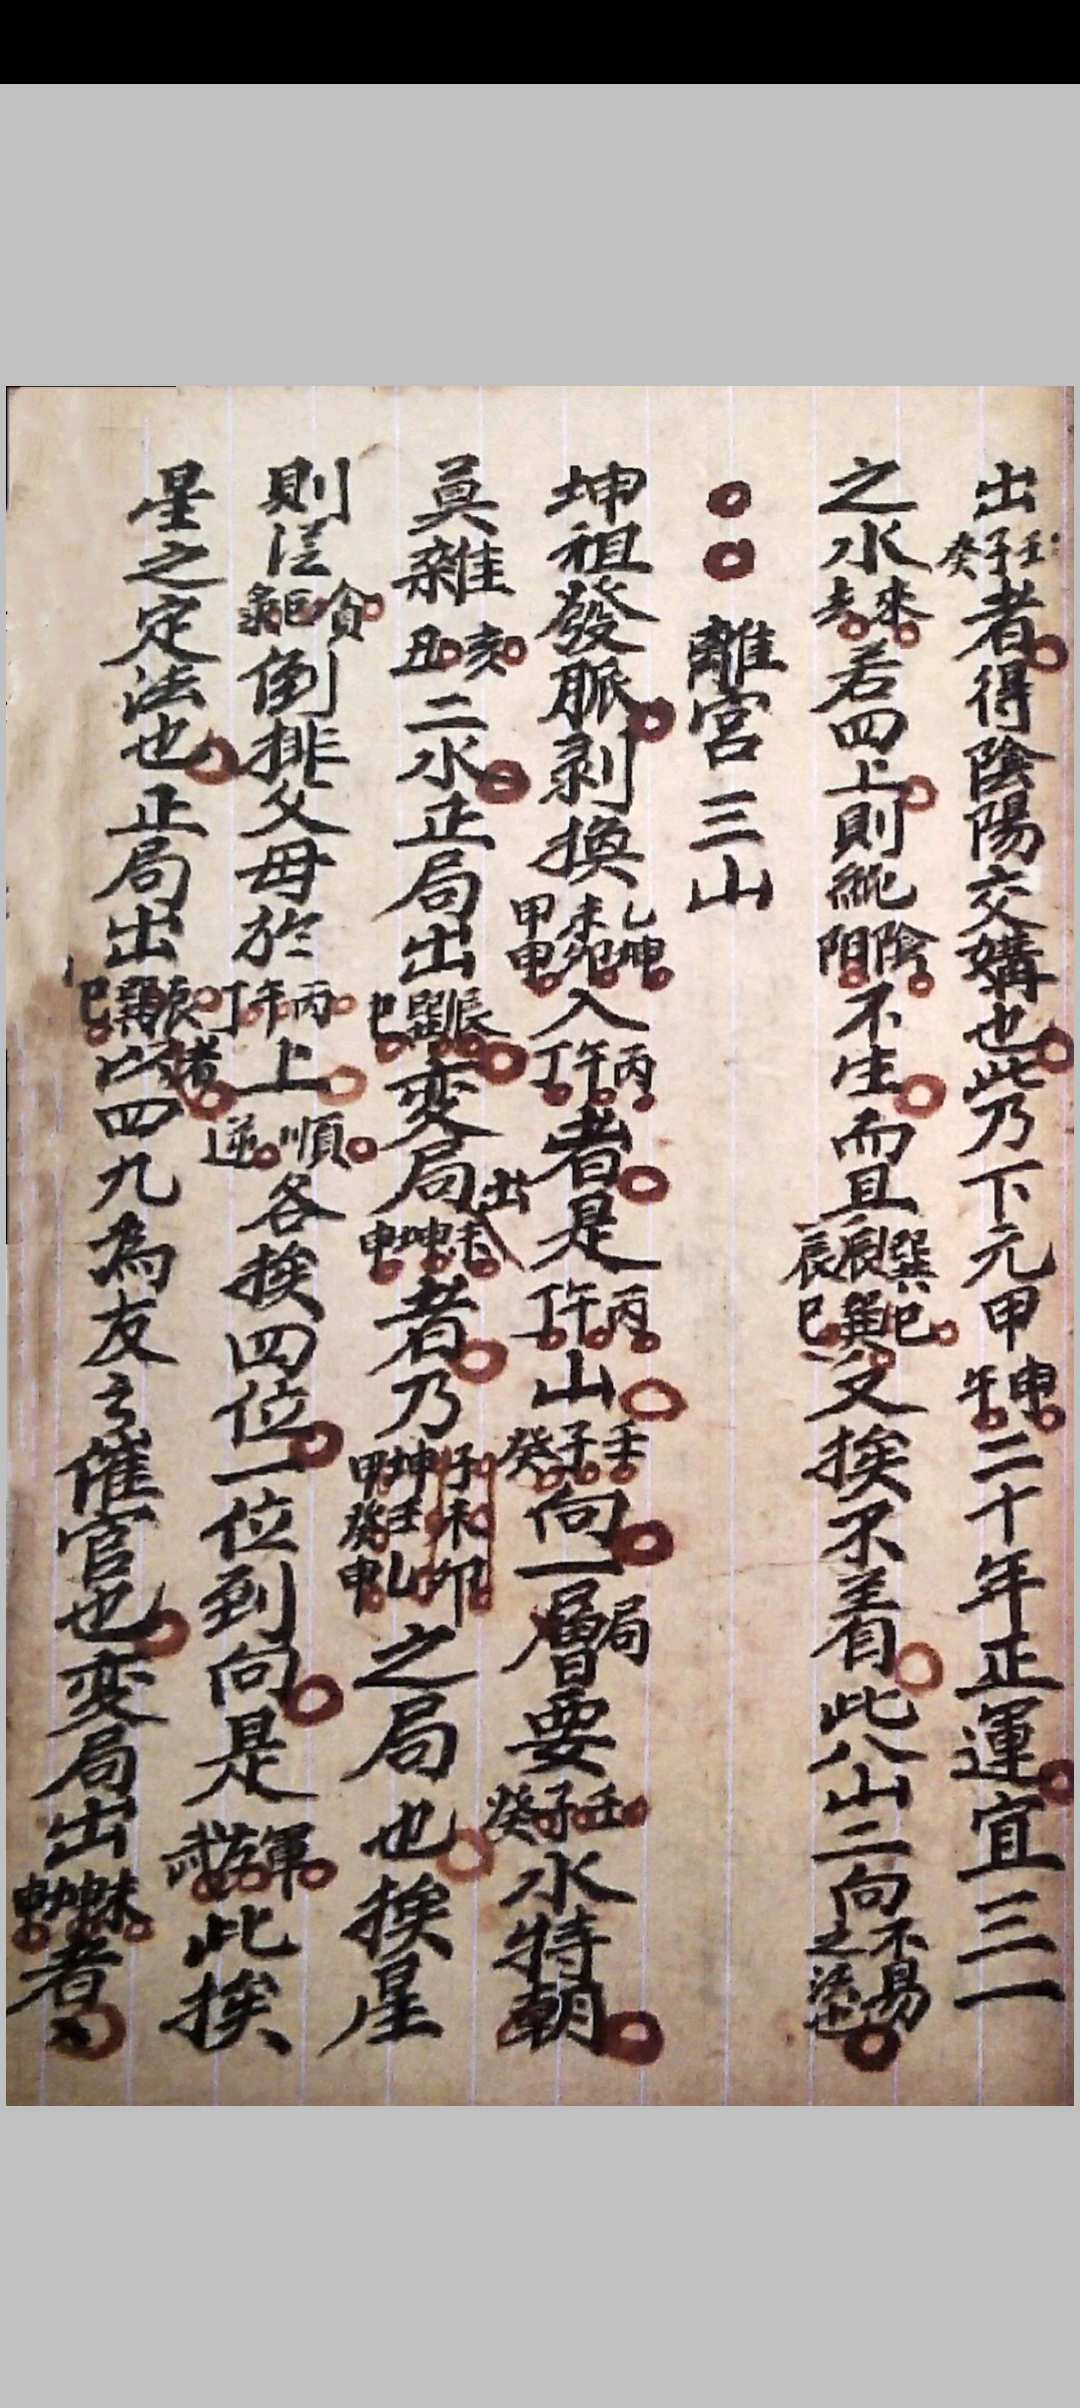 出壬子癸者得陰陽交媾也此乃下元甲申午二十年正運宜三一
之水來去若四上則純陰陽不生而且巽巳辰巽辰巳又挨不着此八山二向不易之
離宮三山
坤祖發脈剥換乙坤未卯甲申入丙午丁者是丙午丁山壬子癸向一層局要壬子癸水特朝
莫雜亥丑二水正局出辰巽巳変局出未坤申者乃子未卯坤壬乙甲癸申之局也挨星
則從貪巨倒排父母於丙午丁上順逆各挨四位一位到向是軍武此挨
星之定法也正局出辰巽巳者以四九為友之催官也変局出未坤申者